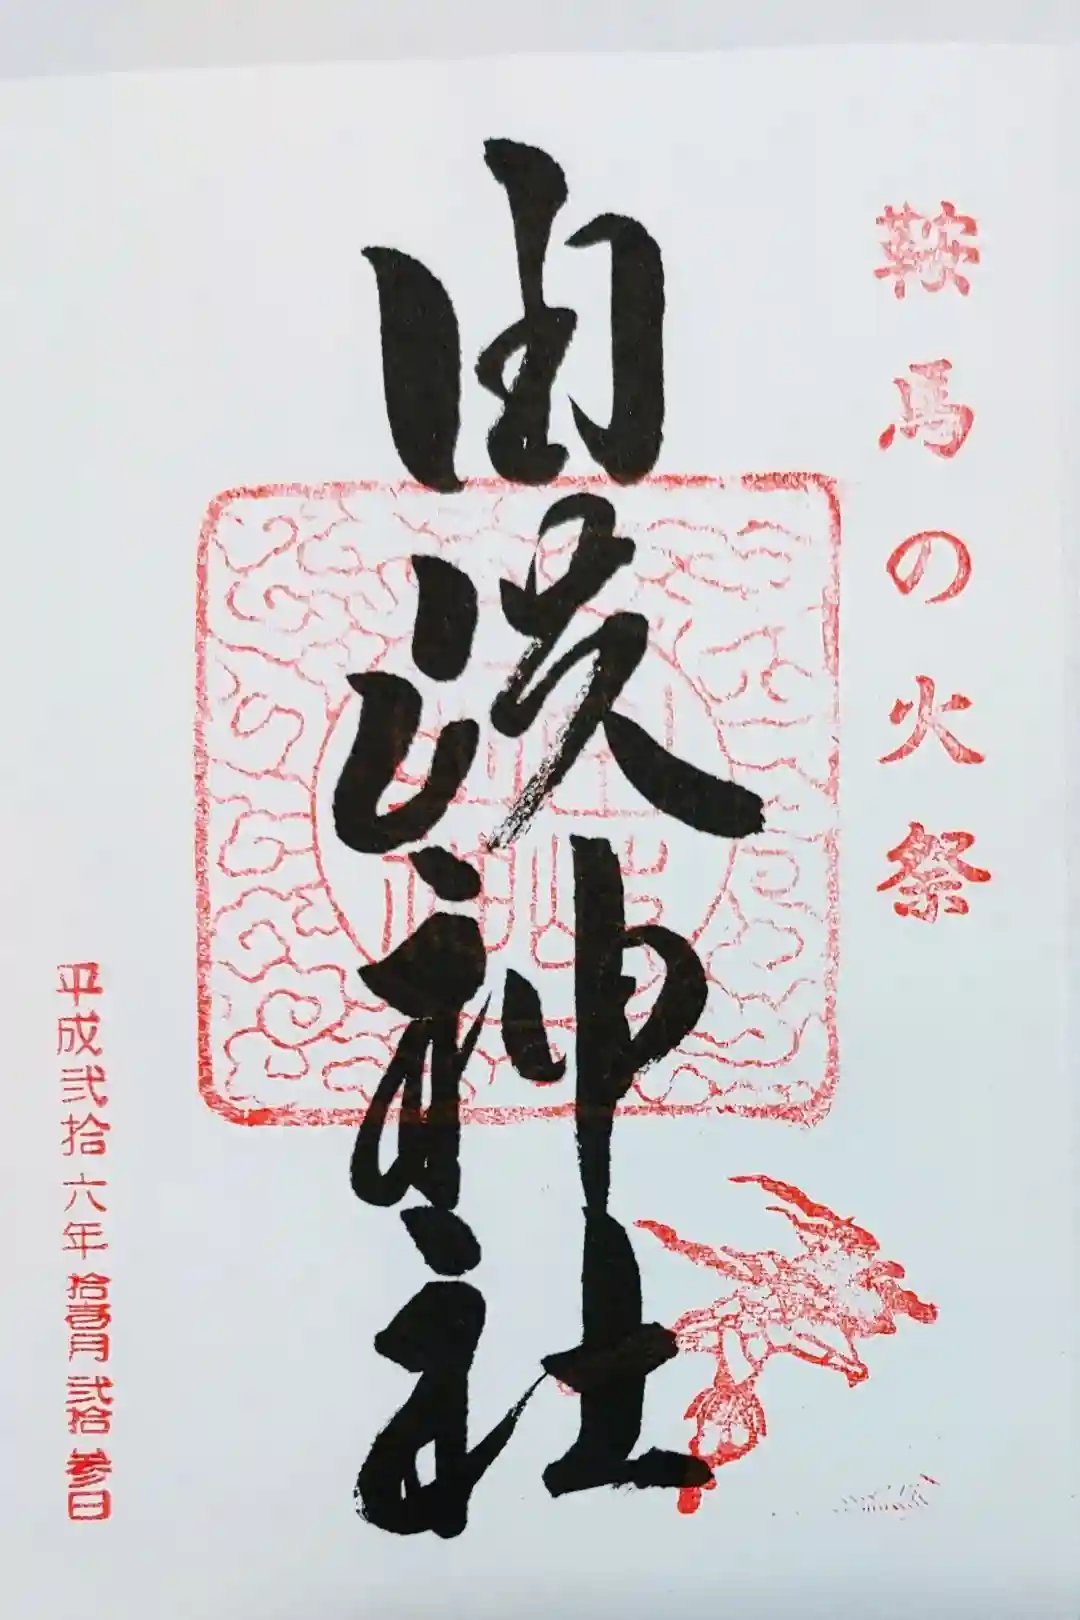 鞍馬の火祭
由岐神社
平成弐拾六年拾壱月弐拾参日